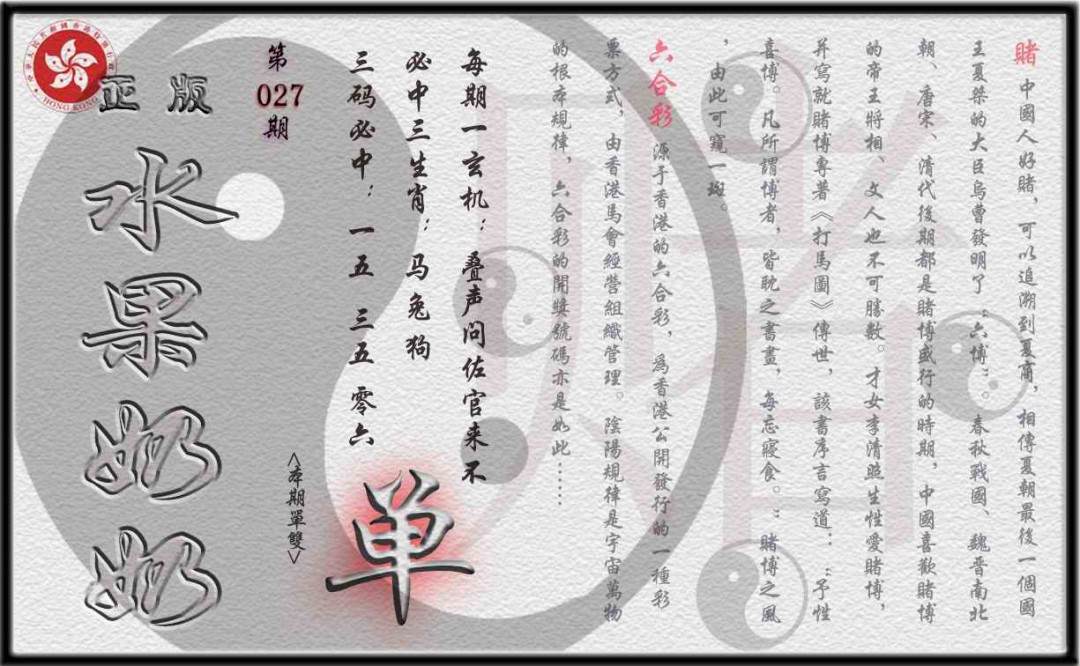 賭 中國人好賭，可以追溯到夏商，相傳夏朝最後一個國
王夏桀的大臣烏曹發明了“六博”。春秋戰國、魏晋南北
朝、唐宋、清代後期都是賭博盛行的時期，中國喜歡賭博
的帝王將相、文人也不可勝數。才女李清照生性愛賭博，
并寫就賭博專著《打馬圖》傳世，該書序言寫道：“予性
喜博。凡所謂博者，皆耽之晝晝，每忘寢食。”賭博之風
，由此可窺一斑。
六合彩 源于香港的六合彩，爲香港公開發行的一種彩
票方式，由香港馬會經營組織管理。陰陽規律是宇宙萬物
的根本規律，六合彩的開獎號碼亦是如此……
每期一玄机：叠声问佐官来不
必中三生肖：马兔狗
三码必中：一五 三五 零六
单
<本期單雙>
第
027
期
正版
水果奶奶
HONG KONG